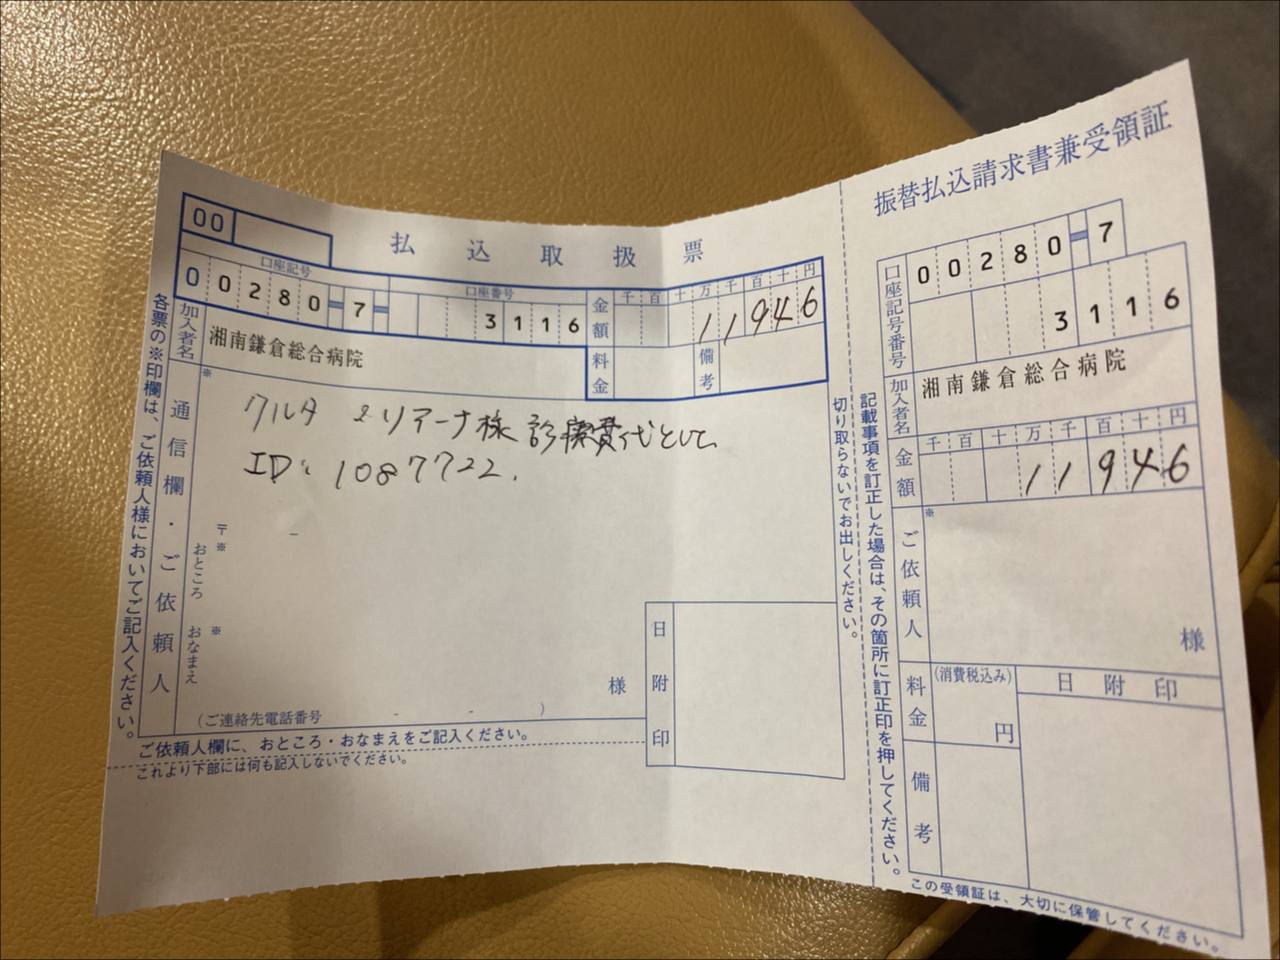 払込取扱票
00
口座記号 口座番号
00280-7- 3116
金額 千百十万千百十円
11946
料金 備考
加入者名 湘南鎌倉総合病院
通信欄・ご依頼人
※
クルタ
様 診療費代として
ID: 1087722.
〒
※
おところ
※
おなまえ
様
(ご連絡先電話番号 - - )
日附印
ご依頼人欄に、おところ・おなまえをご記入ください。
これより下部には何も記入しないでください。
各票の※印欄は、ご依頼人様においてご記入ください。
切り取らないでお出しください。
記載事項を訂正した場合は、その箇所に訂正印を押してください。
振替払込請求書兼受領証
口座記号番号
00280-7
3116
加入者名 湘南鎌倉総合病院
金額 千百十万千百十円
11946
ご依頼人
※
様
料金 (消費税込み)
円
日附印
備考
この受領証は、大切に保管してください。